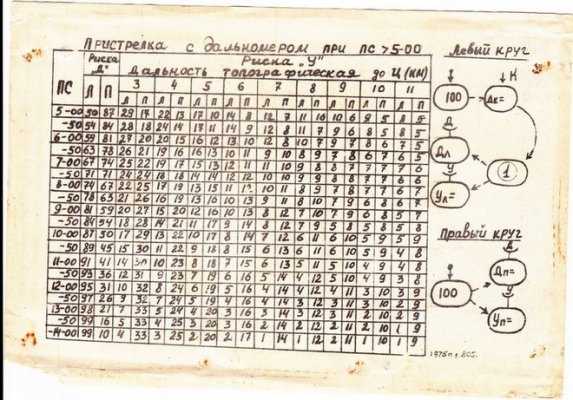 Пристрелка с дальномером при ПС >5-00
Левый круг
ПС Риска „Д" Риска „У"
Дальность топографическая до Ц (км)
3 4 5 6 7 8 9 10 11
Л П Л П Л П Л П Л П Л П Л П Л П Л П Л П
5-00 50 87 29 17 22 13 17 10 14 8 12 7 11 10 6 9 5 8 5
-50 54 84 28 18 24 14 17 11 14 9 12 8 11 7 9 6 8 5 8 5
6-00 59 81 27 20 20 15 16 12 13 10 12 8 10 7 9 7 8 6 7 5
-50 63 78 26 21 19 16 16 13 10 11 9 10 8 9 7 8 6 7 6
7-00 67 74 25 22 19 17 15 13 12 11 11 10 9 8 8 7 7 7 6
-50 71 71 24 24 18 18 14 14 12 12 10 10 9 9 8 8 7 7 7 6
8-00 74 67 22 25 17 19 13 15 11 12 10 11 8 9 7 8 7 7 6 7
-50 78 63 21 26 16 19 13 16 10 13 9 11 8 10 7 9 6 8 6 7
9-00 81 59 20 27 15 20 12 16 10 13 8 12 7 10 7 9 6 8 5 7
-50 84 54 18 28 14 21 11 17 9 14 8 12 7 9 5 8 5 8
10-00 87 50 17 29 13 22 10 17 8 14 7 12 6 11 6 10 5 9 5 9
-50 89 45 15 30 11 22 9 18 8 15 6 13 6 11 6 10 5 9 4 8
11-00 91 41 14 30 10 23 8 18 7 15 6 13 5 11 5 10 4 9 4 8
-50 93 36 12 31 9 23 7 19 6 16 5 14 4 12 5 10 4 9 3 8
12-00 95 31 10 32 8 24 6 19 5 16 4 14 4 12 4 11 3 10 3 9
-50 97 26 9 32 7 24 5 19 4 16 4 14 3 12 3 11 3 10 2 9
13-00 98 21 7 33 5 24 4 20 3 16 3 14 2 12 3 11 2 10 2 9
-50 99 16 5 33 4 25 3 20 3 16 2 14 2 12 2 11 2 10 1 9
14-00 99 10 4 33 3 25 2 20 2 17 1 14 1 12 2 11 1 10 1 9
К
100 Дк=
Д
Дл
У
Ул=
1
Правый круг
Д
Дп=
100
У
Уп=
1975г.